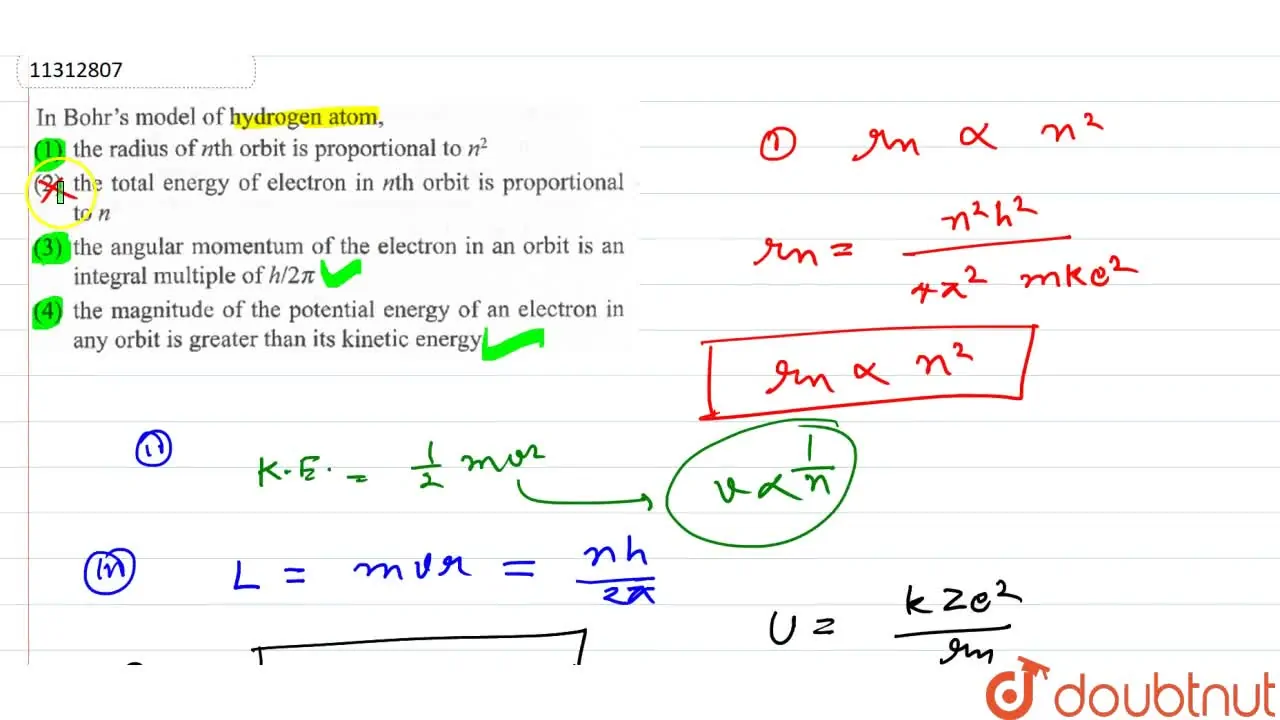 11312807
In Bohr's model of hydrogen atom,
(1) the radius of nth orbit is proportional to n²
(2) the total energy of electron in nth orbit is proportional
to n
(3) the angular momentum of the electron in an orbit is an
integral multiple of h/2π
(4) the magnitude of the potential energy of an electron in
any orbit is greater than its kinetic energy
(i) rn ∝ n²
rn = n²h² / 4π² mke²
rn ∝ n²
(ii) K.E. = 1/2 mv²
v ∝ 1/n
(iii) L = mvr = nh/2π
U = kZe²/rn
doubtnut